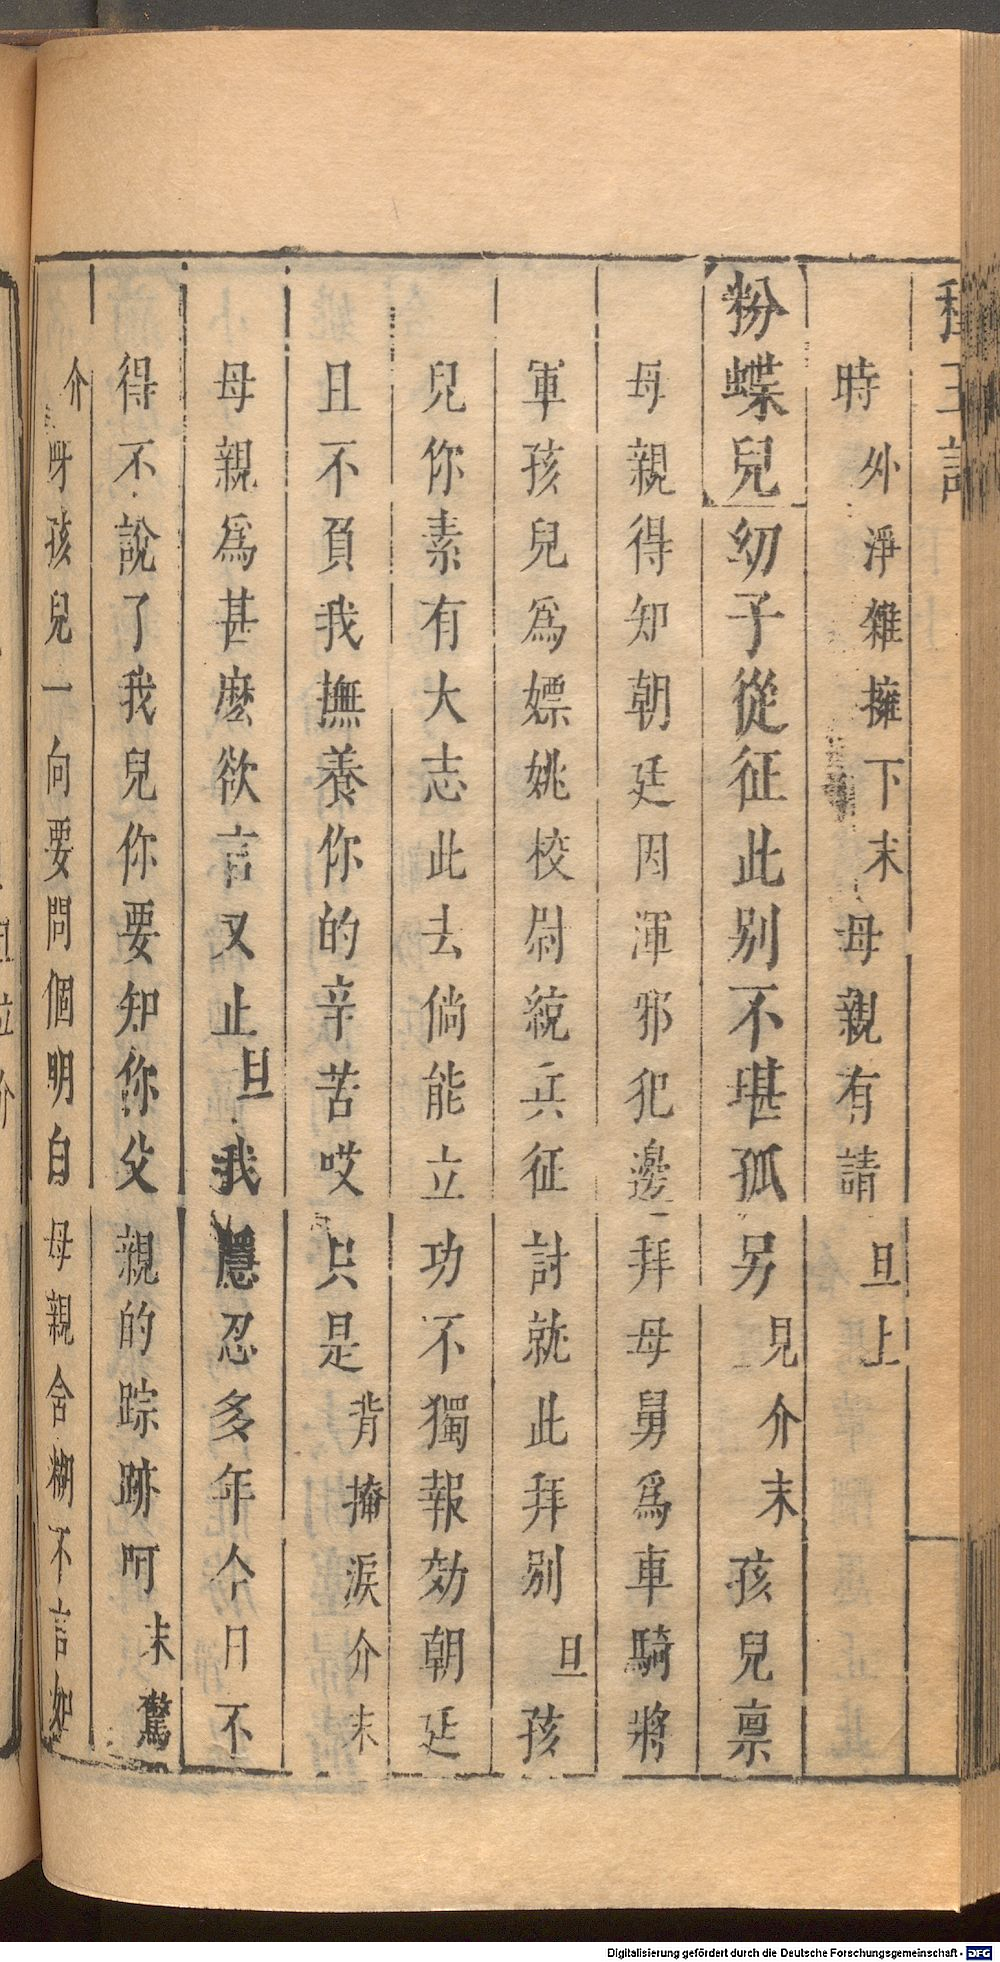 時外淨雜擁下末母親有請旦上
粉蝶兒幼子從征此別不堪孤另見介末孩兒禀
母親得知朝廷因渾邪犯邊拜母舅為車騎將
軍孩兒為嫖姚校尉統兵征討就此拜別旦孩
兒你素有大志此去倘能立功不獨報効朝廷
且不負我撫養你的辛苦哎只是背掩淚介末
母親爲甚麼欲言又止旦我隱忍多年今日不
得不說了我兒你要知你父親的踪跡呵末驚
介呀孩兒一向要問個明白母親含糊不言如
Digitalisierung gefördert durch die Deutsche Forschungsgemeinschaft - DFG